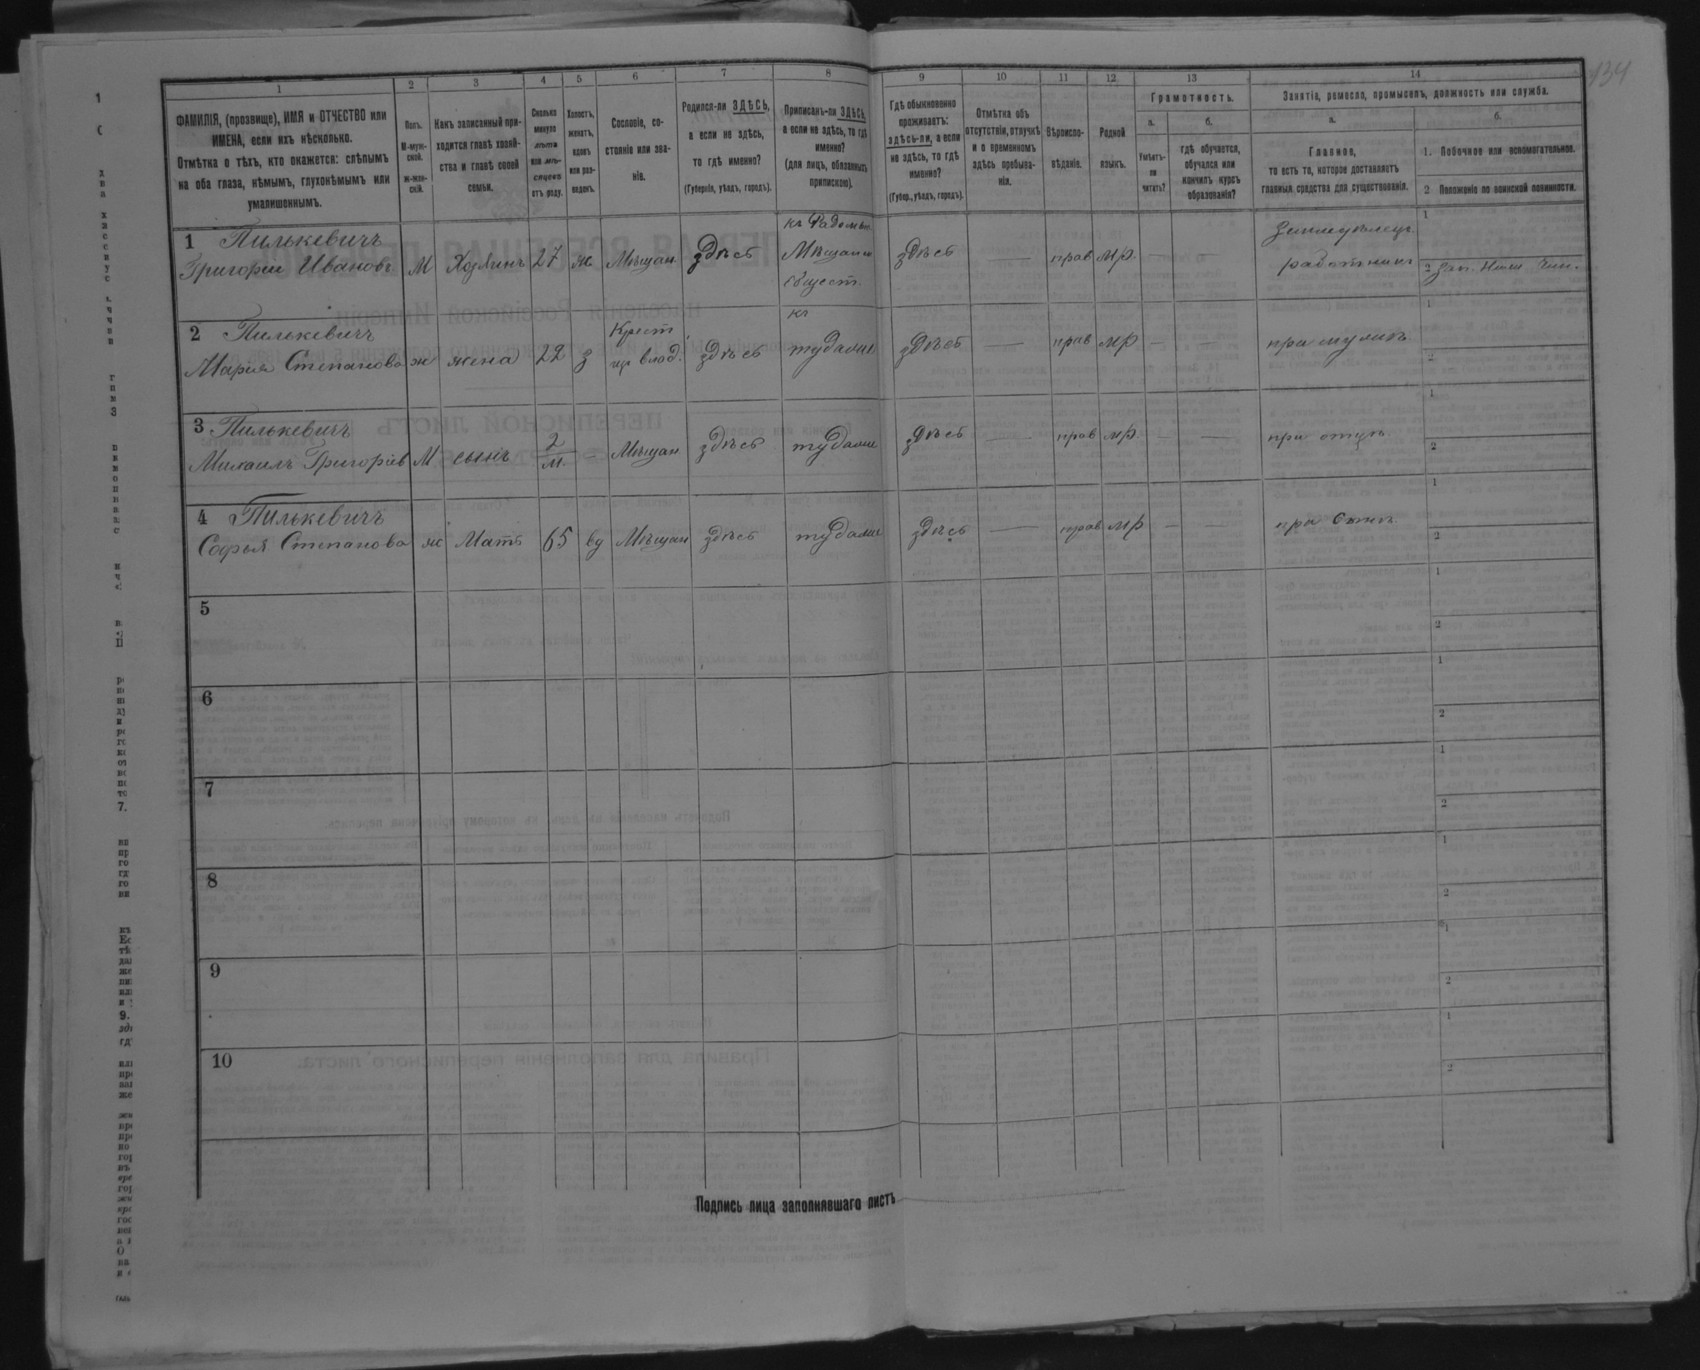 134
1 2 3 4 5 6 7 8 9 10 11 12 13 14
ФАМИЛІЯ, (прозвище), ИМЯ и ОТЧЕСТВО или
ИМЕНА, если ихъ нѣсколько.
Отмѣтка о тѣхъ, кто окажется: слѣпымъ
на оба глаза, нѣмымъ, глухонѣмымъ или
умалишеннымъ.
Полъ.
М-муж-
ской.
Ж-жен-
скій.
Какъ записанный при-
ходится главѣ хозяй-
ства и главѣ своей
семьи.
Сколько
минуло
лѣтъ
или мѣ-
сяцевъ
отъ роду.
Холостъ,
женатъ,
вдовъ
или раз-
веденъ.
Сословіе, со-
стояніе или зва-
ніе.
Родился-ли ЗДѢСЬ,
а если не здѣсь,
то гдѣ именно?
(Губернія, уѣздъ, городъ).
Приписанъ-ли ЗДѢСЬ,
а если не здѣсь, то гдѣ
именно?
(для лицъ, обязанныхъ
припискою).
Гдѣ обыкновенно
проживаетъ:
здѣсь-ли, а если
не здѣсь, то гдѣ
именно?
(Губер., уѣздъ, городъ).
Отмѣтка объ
отсутствіи, отлучкѣ
и о временномъ
здѣсь пребыва-
ніи.
Вѣроиспо-
вѣданіе.
Родной
языкъ.
Грамотность.
а.
Умѣетъ-
ли
читать?
б.
гдѣ обучается,
обучался или
кончилъ курсъ
образованія?
Занятіе, ремесло, промыселъ, должность или служба.
а.
Главное,
то есть то, которое доставляетъ
главныя средства для существованія.
б.
1. Побочное или вспомогательное.
2 Положеніе по воинской повинности.
1 Пилькевичъ
Григорій Ивановъ М Хозяинъ 27 ж Мѣщан здѣсь
къ Радом
Мѣщанск
Общест.
здѣсь — прав мр. — —
работникъ
1
2 Зап. Чин.
2 Пилькевичъ
Марія Степанова ж жена 22 з
Крест
из влад.
здѣсь
къ
тудаже
здѣсь — прав мр — — при мужѣ
1
2
3 Пилькевичъ
Михаилъ Григоріев М сынъ 2/м. – Мѣщан здѣсь тудаже здѣсь — прав мр — — при отцѣ
1
2
4 Пилькевичъ
Софья Степанова ж Мать 65 вд Мѣщан здѣсь тудаже здѣсь — прав мр — — при Сынѣ
1
2
5
1
2
6
1
2
7
1
2
8
1
2
9
1
2
10
1
2
Подпись лица заполнявшаго листъ